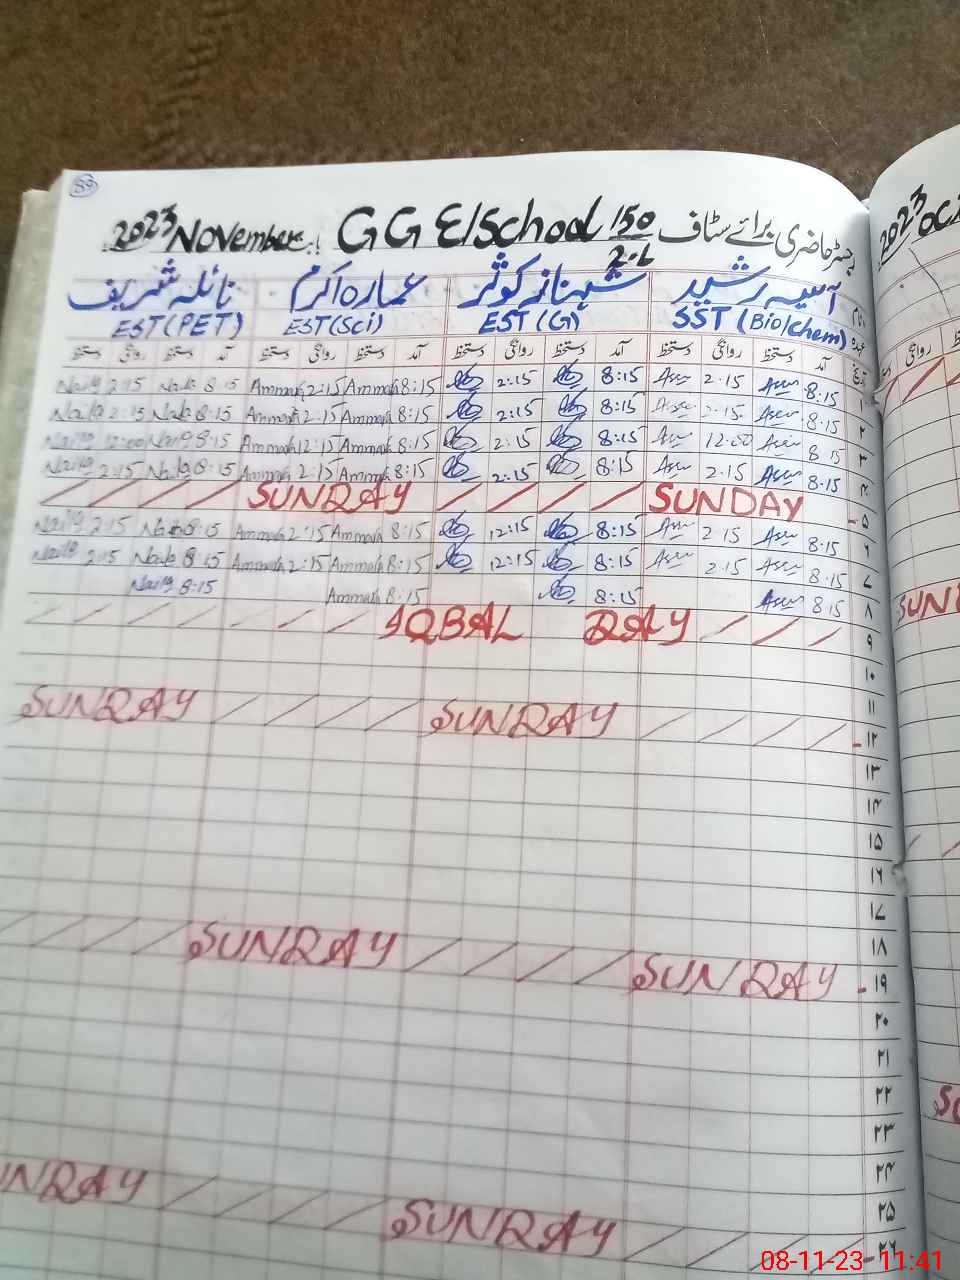 89
2023 November :. G G E/School 150/2-L جسٹر حاضری برائے سٹاف
2023 Oc
آسیہ رشید شہناز کوثر عمارہ اکرم نائلہ شریف
SST (Bio/chem) EST (G) EST (Sci) EST (PET)
عہدہ
آمد دستخط روانگی دستخط آمد دستخط روانگی دستخط آمد دستخط روانگی دستخط آمد دستخط روانگی دستخط
روانگی
Naila 2:15 Naila 8:15 Ammarah 2:15 Ammarah 8:15 2:15 8:15 Asia 2.15 Asia 8:15 ۱
Naila 2:15 Naila 8:15 Ammarah 2:15 Ammarah 8:15 2:15 8:15 Asia 2.15 Asia 8:15 ۲
Naila 12:00 Naila 8:15 Ammarah 12:15 Ammarah 8:15 2:15 8:15 Asia 12.00 Asia 8:15 ۳
Naila 2:15 Naila 8:15 Ammarah 2:15 Ammarah 8:15 2:15 8:15 Asia 2.15 Asia 8:15 ۴
SUNDAY SUNDAY ۵
Naila 2:15 Naila 8:15 Ammarah 2:15 Ammarah 8:15 12:15 8:15 Asia 2.15 Asia 8:15 ۶
Naila 2:15 Naila 8:15 Ammarah 2:15 Ammarah 8:15 12:15 8:15 Asia 2.15 Asia 8:15 ۷
Naila 8:15 Ammarah 8:15 8:15 Asia 8:15 ۸
IQBAL DAY ۹
۱۰
۱۱
SUNDAY SUNDAY ۱۲
۱۳
۱۴
۱۵
۱۶
۱۷
۱۸
SUNDAY SUNDAY ۱۹
۲۰
۲۱
۲۲
۲۳
۲۴
۲۵
SUNDAY SUNDAY ۲۶
08-11-23 11:41